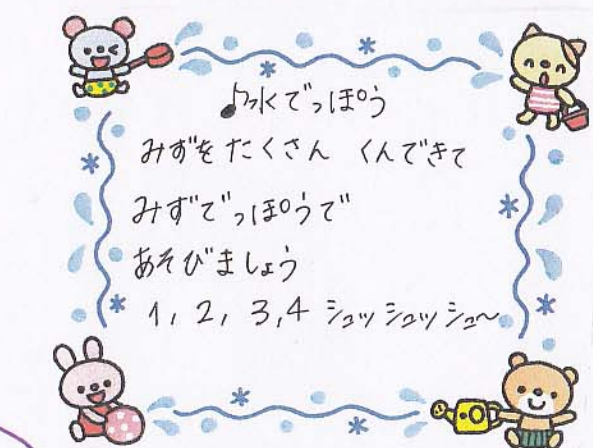 ♪水でっぽう
みずを たくさん くんできて
みずでっぽうで
あそびましょう
1, 2, 3, 4 シュッ シュッ シュ〜